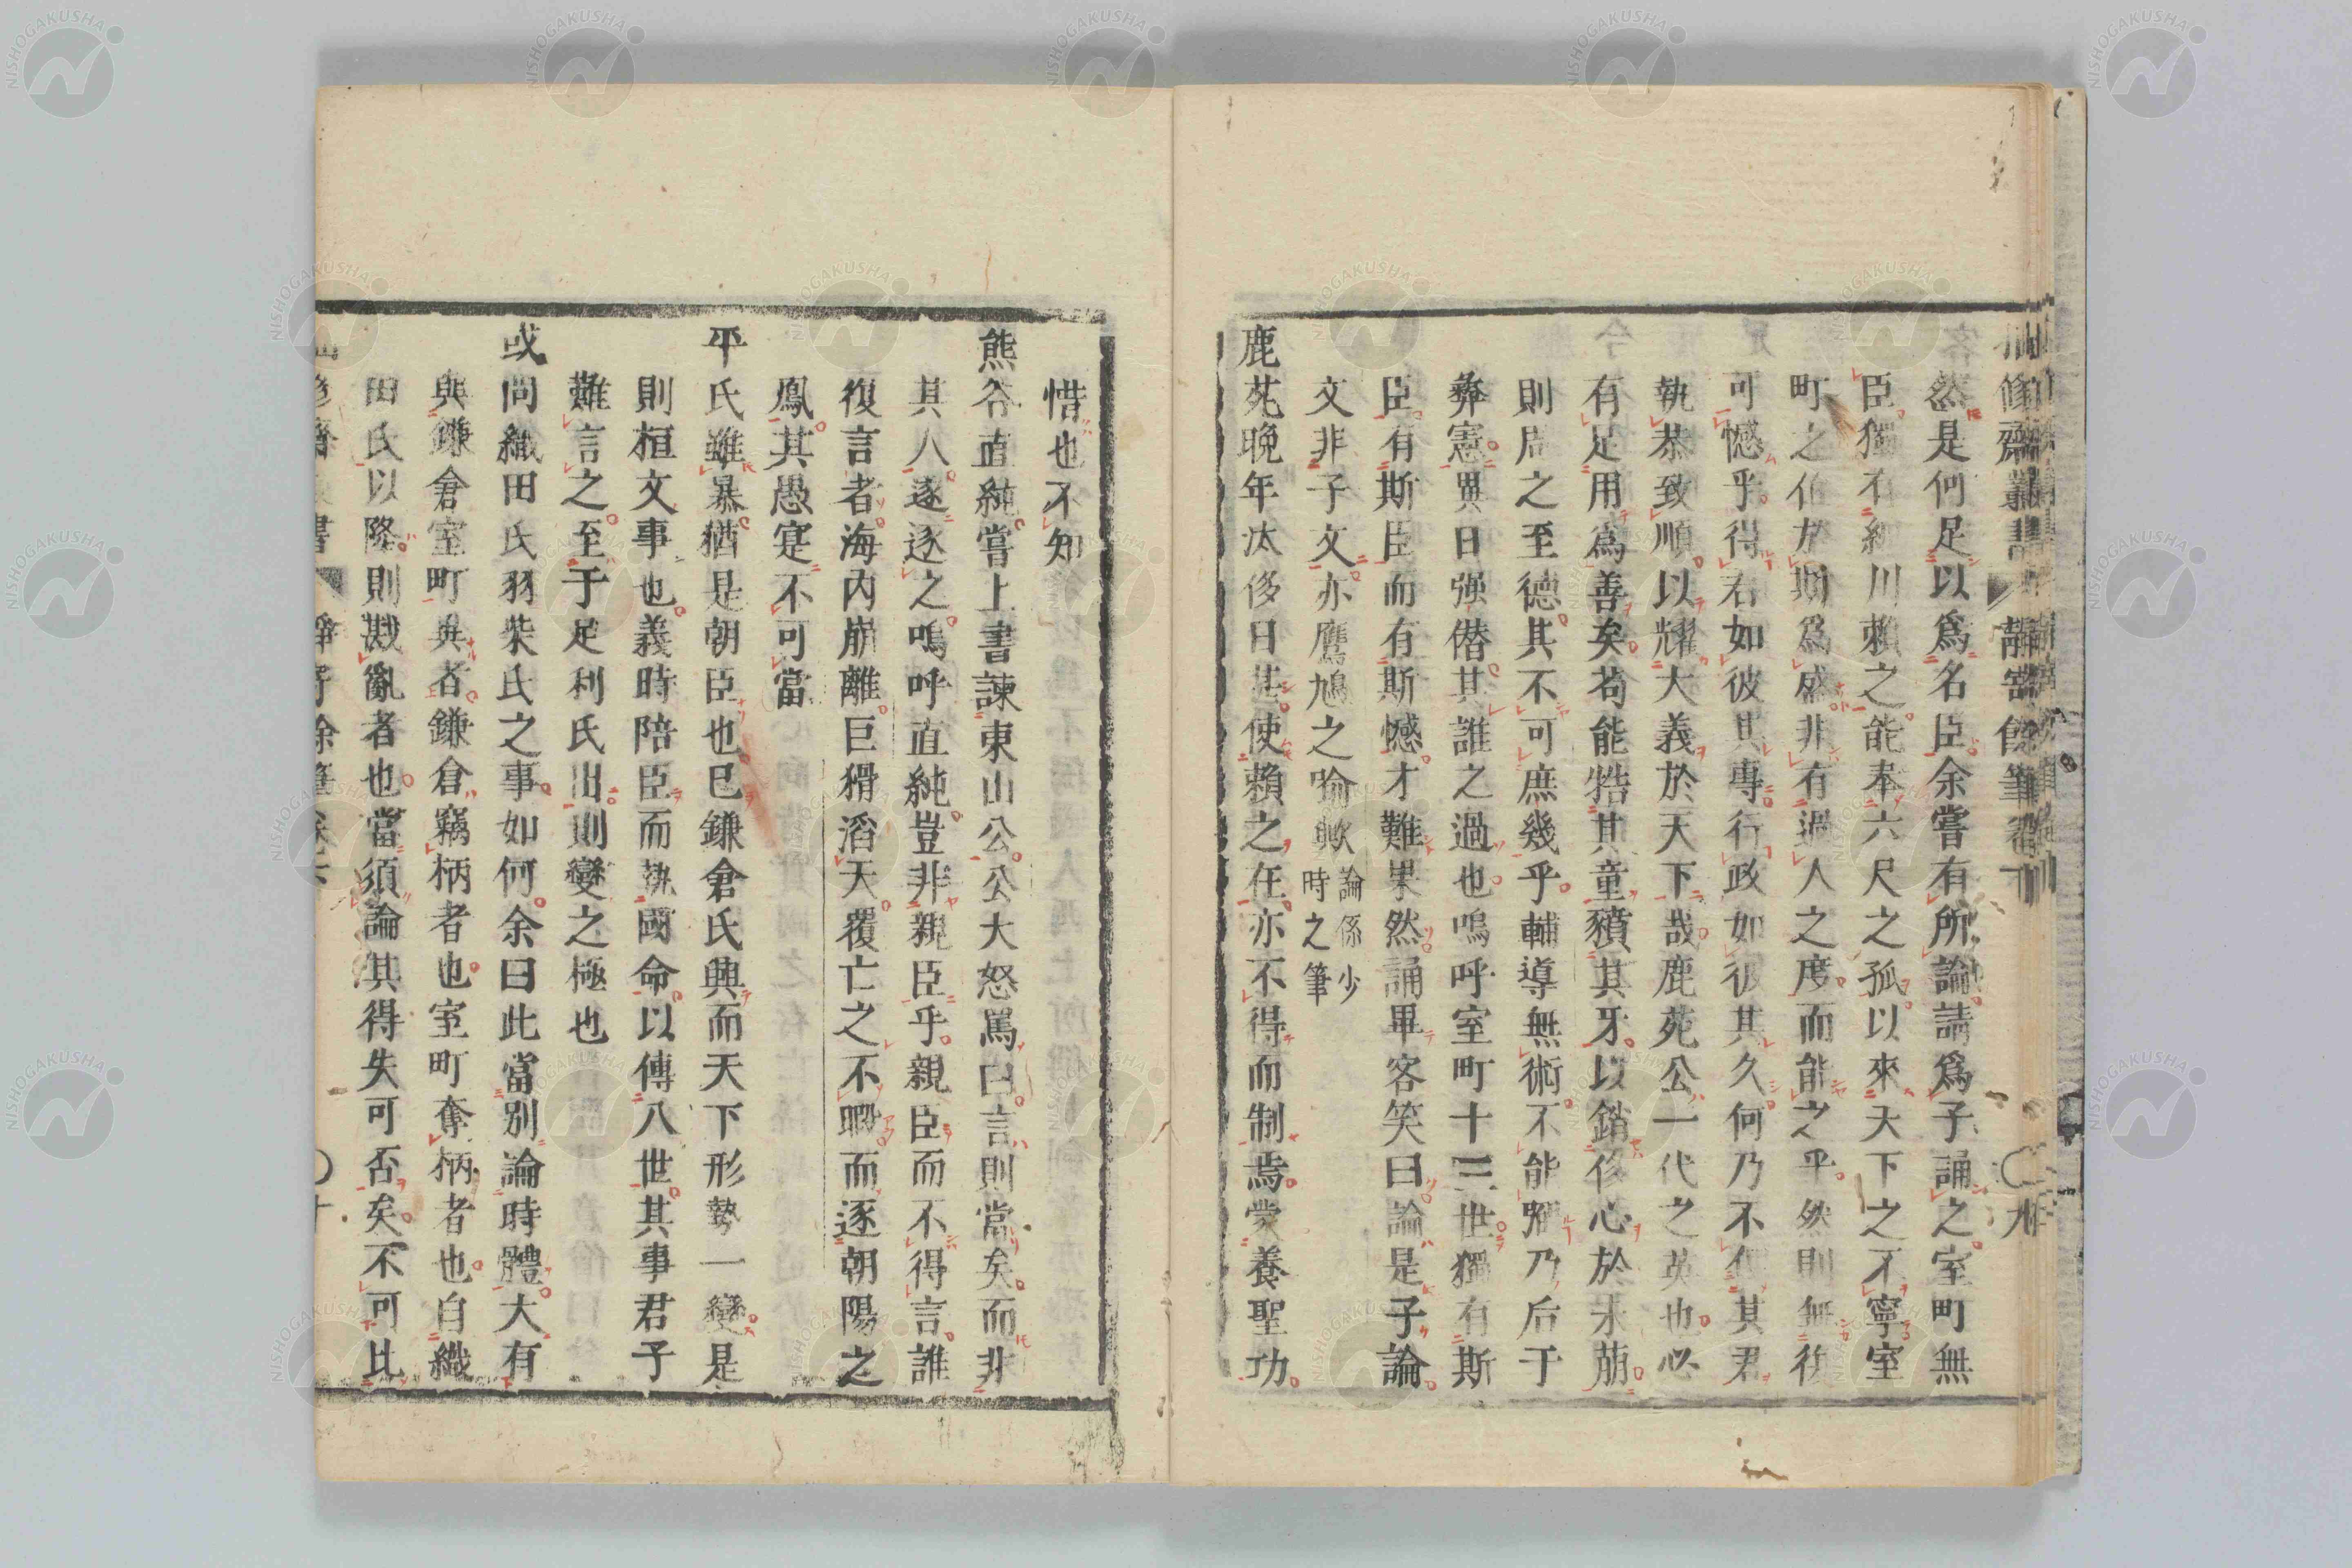 然是何足以爲名臣余嘗有所論請爲子誦之室町無
臣獨有細川賴之能奉六尺之孤以來天下之不寧室
町之作於斯爲盛非有過人之度而能之乎然則無
可憾乎得君如彼其專行政如彼其久何乃不使其君
執恭致順以耀大義於天下哉鹿苑公一代之英也必
有足用爲善矣苟能牿其童豶其牙以銷侈心於未萠
則周之至德其不可庶幾乎輔導無術不能 乃后于
彜憲異日强僣其誰之過也嗚呼室町十三世獨有斯
臣有斯臣而有斯憾才難果然誦畢客笑曰論是子論
文非子文亦鷹鳩之喩歟論係少
時之筆
鹿苑晚年汰侈日甚使賴之在亦不得而制焉蒙養聖功
惜也不知
熊谷直純嘗上書諫東山公公大怒罵曰言則當矣而非
其人逐逐之嗚呼直純豈非親臣乎親臣而不得言誰
復言者海內崩離巨猾滔天覆亡之不暇而逐朝陽之
鳳其愚寔不可當
平氏雖暴猶是朝臣也巳鎌倉氏興而天下形勢一變是
則桓文事也義時陪臣而執國命以傳八世其事君子
難言之至于足利氏出則變之極也
或問織田氏羽柴氏之事如何余曰此當別論時體大有
與鎌倉室町異者鎌倉竊柄者也室町奪柄者也自織
田氏以降則戡亂者也當須論其得失可否矣不可比